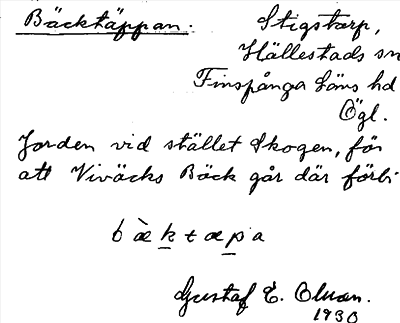 Bäcktäppan.
Stigstorp,
Hällestads sn
Finspånga Läns hd
Ögl.
Jorden vid stället Skogen, för
att Viväcks Bäck går där förbi
b æ̀ k t æ p a
Gustaf E.
1930